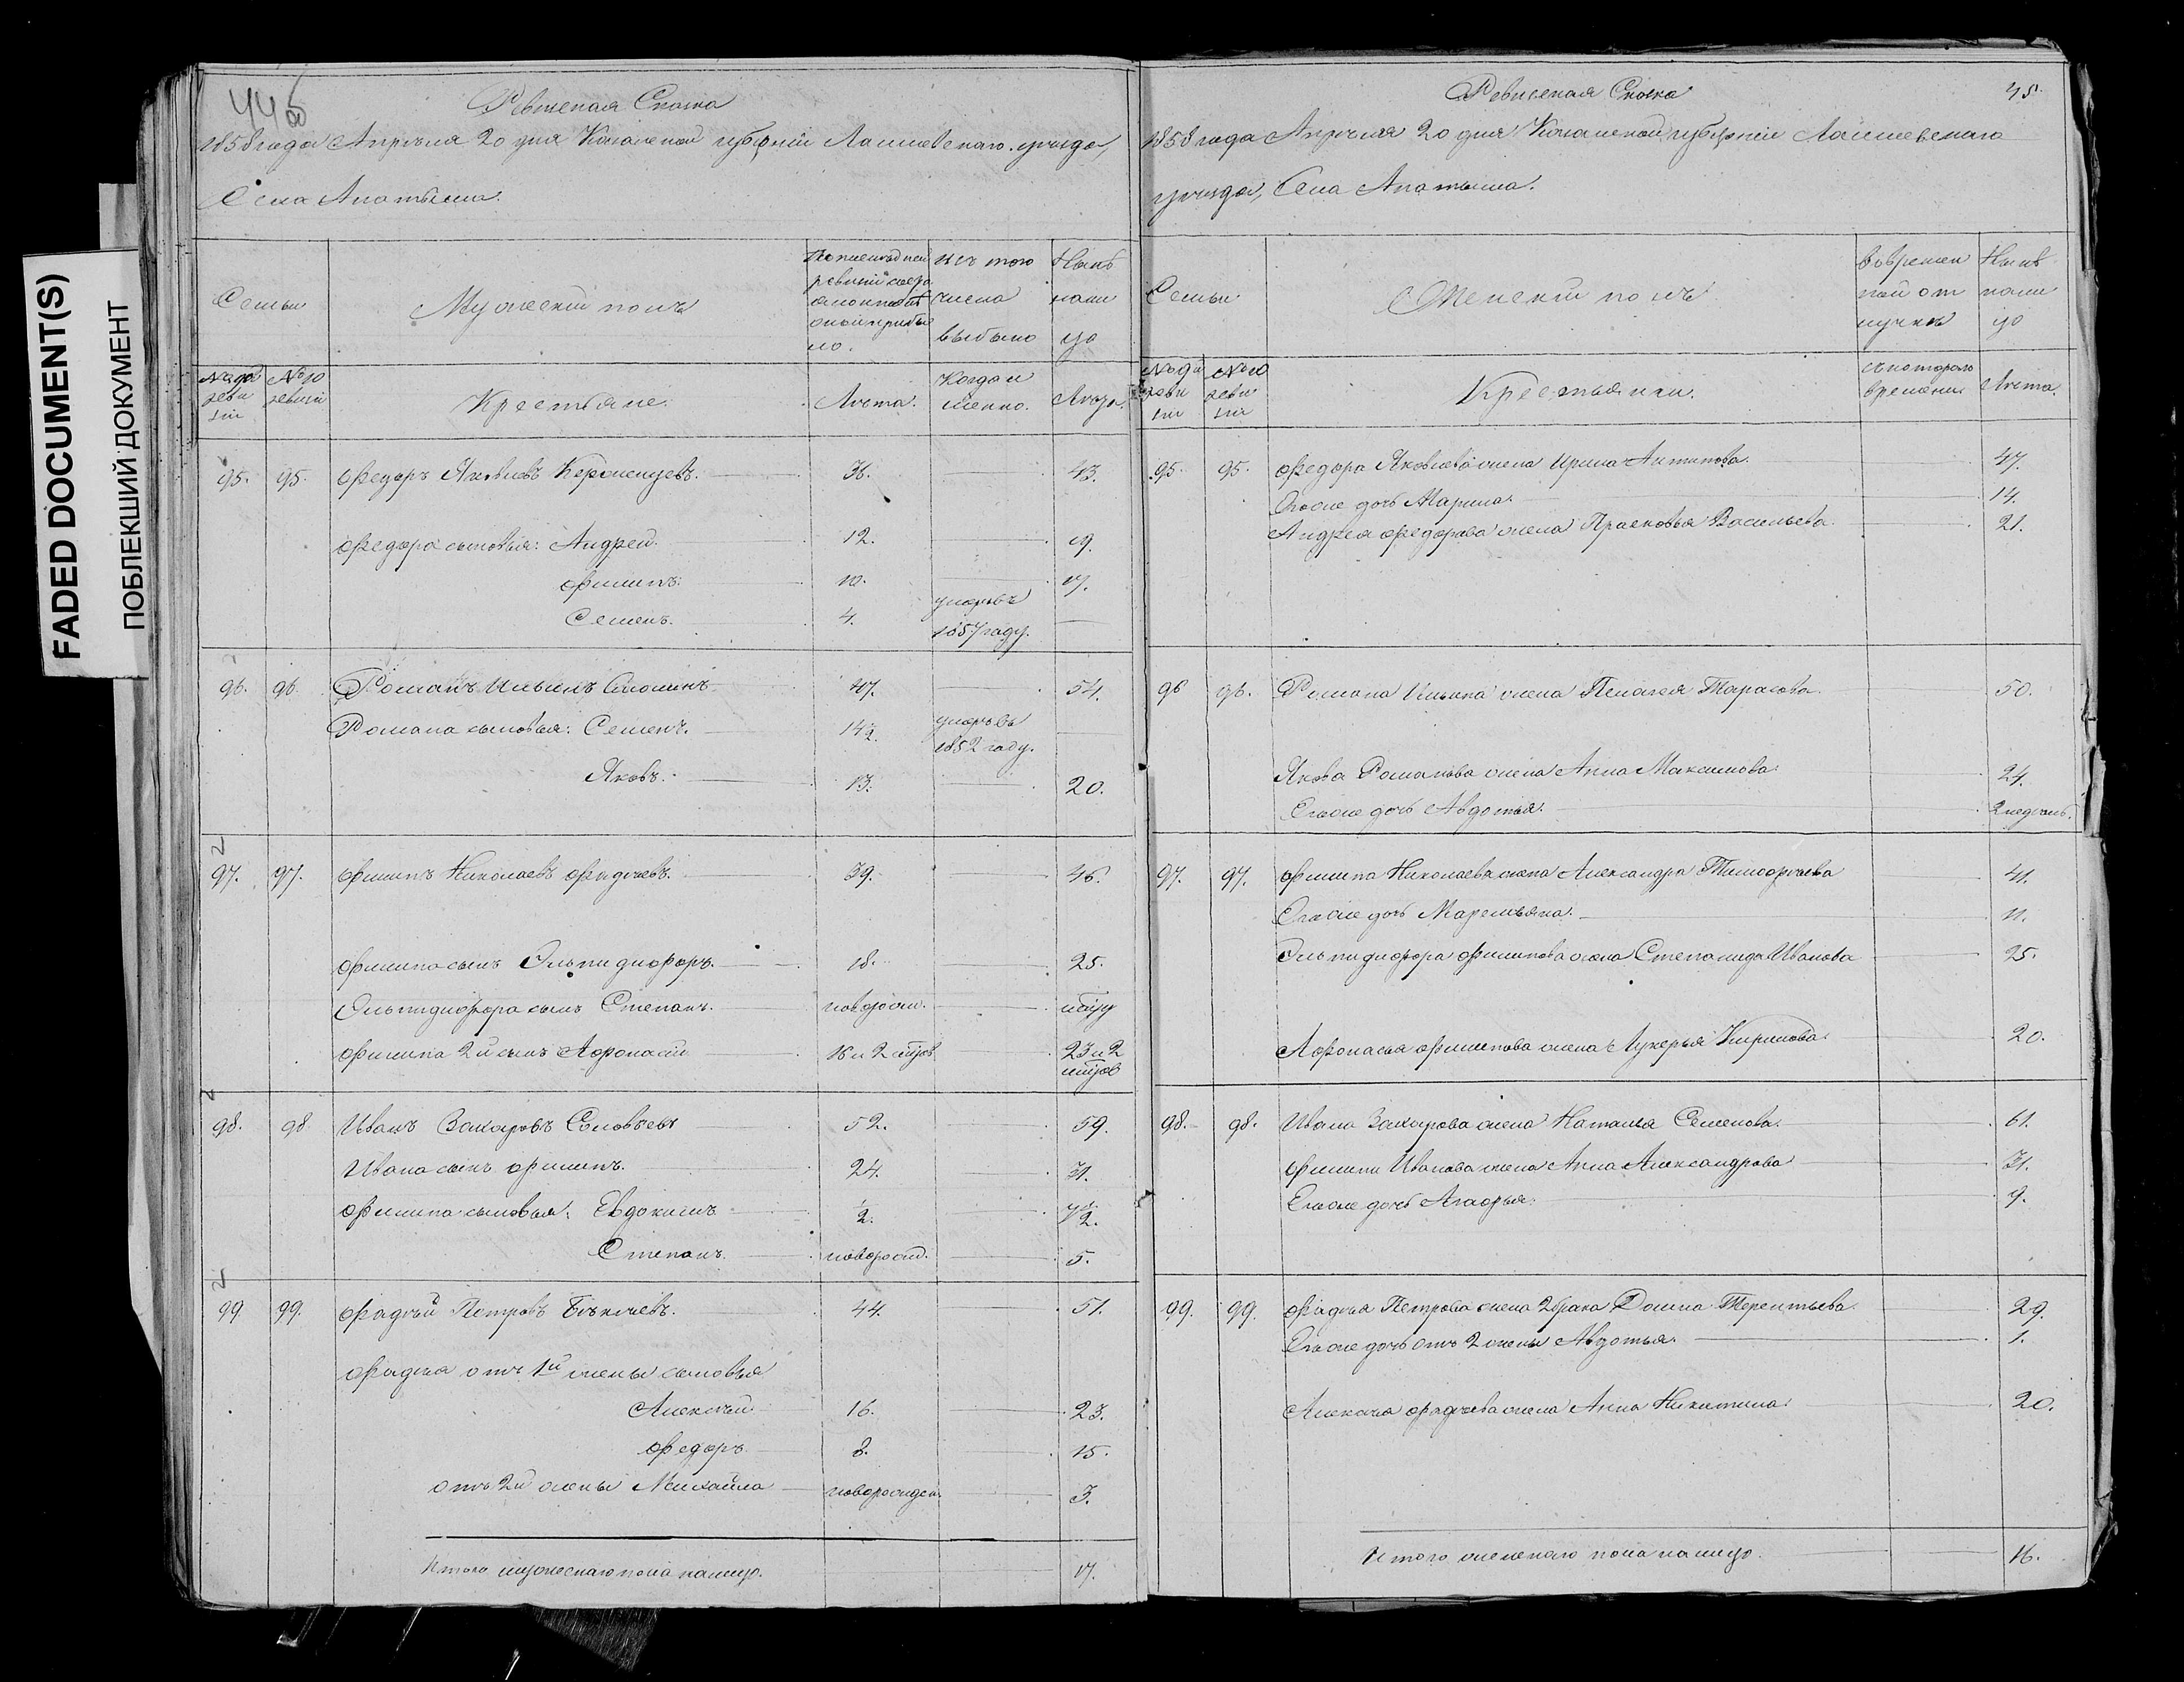 FADED DOCUMENT(S)
ПОБЛЕКШИЙ ДОКУМЕНТ
44 об
Ревизская Сказка
1858 года Апрѣля 20 дня Казанской губернiи Лаишевскаго уѣзда,
Села
Семьи
Мужескiй полъ
По последней ревизiи состояло и после оной прибыло.
Изъ того числа выбыло
Нынѣ налицо
№ 9й ревизiи
№ 10 ревизiи
Крестьяне.
Лѣта.
Когда именно.
Лѣта.
95. 95. Федоръ Яковлевъ 36. 43.
Федора сыновья: Андрей. 12. 19.
Филипъ. 10. 17.
Семенъ. 4. умеръ въ 1857 году.
96. 96. Романъ Ильинъ 47. 54.
Романа сыновья: Семенъ. 14½. умеръ въ 1852 году.
Яковъ. 13. 20.
97. 97. Филипъ Николаевъ Фадѣевъ. 39. 46.
Филипа сынъ Эльпидифоръ. 18. 25.
Эльпидифора сынъ Степанъ. новорожд.
Филипа 2й сынъ Афонасiй 16 и 2 23 и 2
98. 98. Иванъ Захаровъ Соловьевъ 52. 59.
Ивана сынъ Филипъ. 24. 31.
Филипа сыновья: Евдокимъ
Степанъ. новорожд. 5.
99. 99. Фадѣй Петровъ 44. 51.
Фадѣя отъ 1й жены сыновья
Алексѣй 16. 23.
Федоръ 8. 15.
отъ 2й жены Михайла новорожден. 3.
Итого мужескаго пола налицо. 17.
Ревизская Сказка 45.
1858 года Апрѣля 20 дня Казанской губернiи Лаишевскаго
уѣзда, Села
Семьи
Женскiй полъ
Во временной отлучкѣ
Нынѣ налицо
№ 9й ревизiи
№ 10 ревизiи
Крестьянки.
съ котораго времени
Лѣта.
95. 95. Федора Яковлева жена Ирина Антипова. 47.
Ево же дочь Марина. 14.
Андрея Федорова жена Прасковья Васильева. 21.
96 96. Романа Ильина жена Пелагея Тарасова. 50.
Якова Романова жена Анна Максимова. 24.
Ево же дочь Авдотья. 2 недѣль.
97. 97. Филипа Николаева жена Александра Тимофѣева 41.
Ево же дочь Маремьяна. 11.
Эльпидифора Филипова жена Степанида Иванова 25.
Афонасья Филипова жена Лукерья Кирилова. 20.
98. 98. Ивана Захарова жена Наталья Семенова. 61.
Филипа Иванова жена Анна Александрова 31.
Ево же дочь Агафья. 9.
99. 99. Фадѣя Петрова жена 2 брака Домна Терентьева. 29.
Ево же дочь отъ 2 жены Авдотья. 1.
Алексѣя Фадѣева жена Анна Никитина. 20.
Итого женскаго пола налицо. 16.